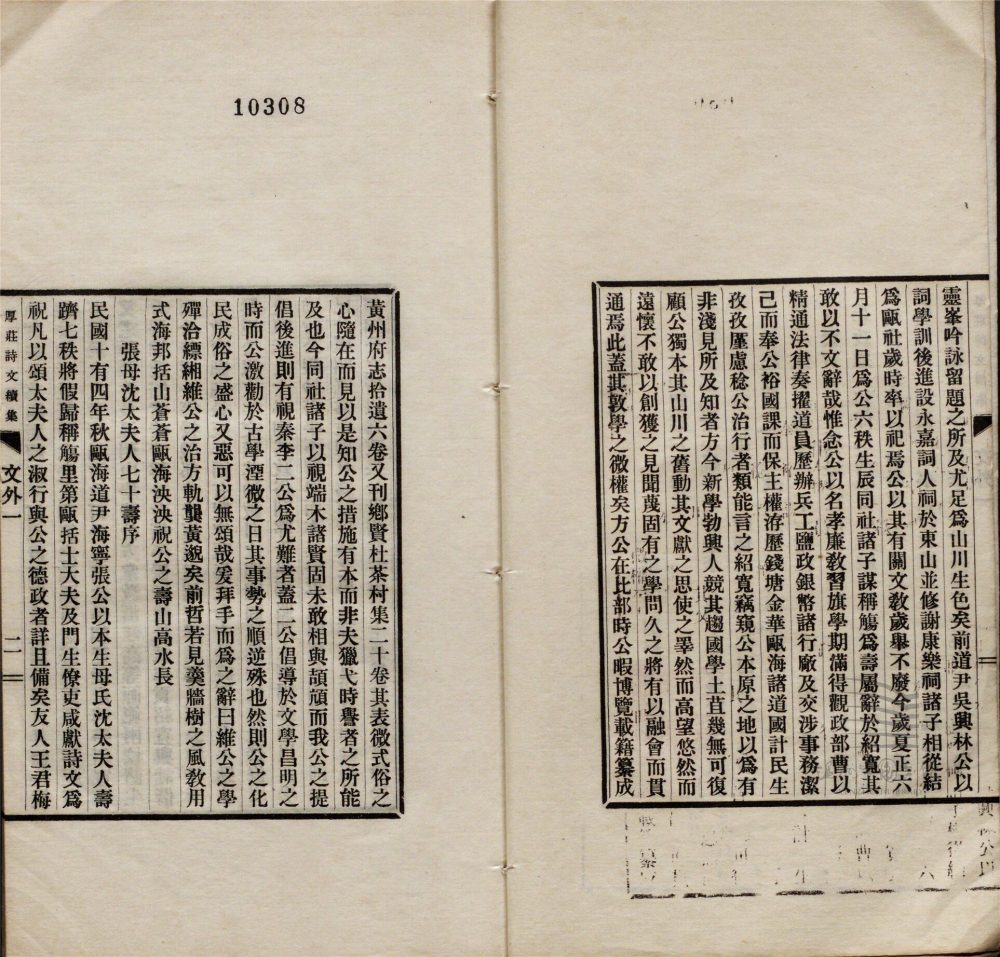 靈峯吟詠留題之所及尤足爲山川生色矣前道尹吳興林公以
詞學訓後進設永嘉詞人祠於東山並修謝康樂祠諸子相從結
爲甌社歲時率以祀焉公以其有關文敎歲舉不廢今歲夏正六
月十一日爲公六秩生辰同社諸子謀稱觴爲壽屬辭於紹寬其
敢以不文辭哉惟念公以名孝廉敎習旗學期滿得觀政部曹以
精通法律奏擢道員歷辦兵工鹽政銀幣諸行廠及交涉事務潔
己而奉公裕國課而保主權洊歷錢塘金華甌海諸道國計民生
孜孜厪慮稔公治行者類能言之紹寬竊窺公本原之地以爲有
非淺見所及知者方今新學勃興人競其趨國學土苴幾無可復
顧公獨本其山川之舊動其文獻之思使之睪然而高望悠然而
遠懷不敢以創獲之見聞蔑固有之學問久之將有以融會而貫
通焉此蓋其敦學之微權矣方公在比部時公暇博覽載籍纂成
10308
黃州府志拾遺六卷又刊鄉賢杜茶村集二十卷其表微式俗之
心隨在而見以是知公之措施有本而非夫獵弋時譽者之所能
及也今同社諸子以視端木諸賢固未敢相與頡頏而我公之提
倡後進則有視秦李二公爲尤難者蓋二公倡導於文學昌明之
時而公激勸於古學湮微之日其事勢之順逆殊也然則公之化
民成俗之盛心又惡可以無頌哉爰拜手而爲之辭曰維公之學
殫洽縹緗維公之治方軌龔黃邈矣前哲若見羹牆樹之風敎用
式海邦括山蒼蒼甌海泱泱祝公之壽山高水長
張母沈太夫人七十壽序
民國十有四年秋甌海道尹海寧張公以本生母氏沈太夫人壽
躋七秩將假歸稱觴里第甌括士大夫及門生僚吏咸獻詩文爲
祝凡以頌太夫人之淑行與公之德政者詳且備矣友人王君梅
厚莊詩文續集
文外一
二一